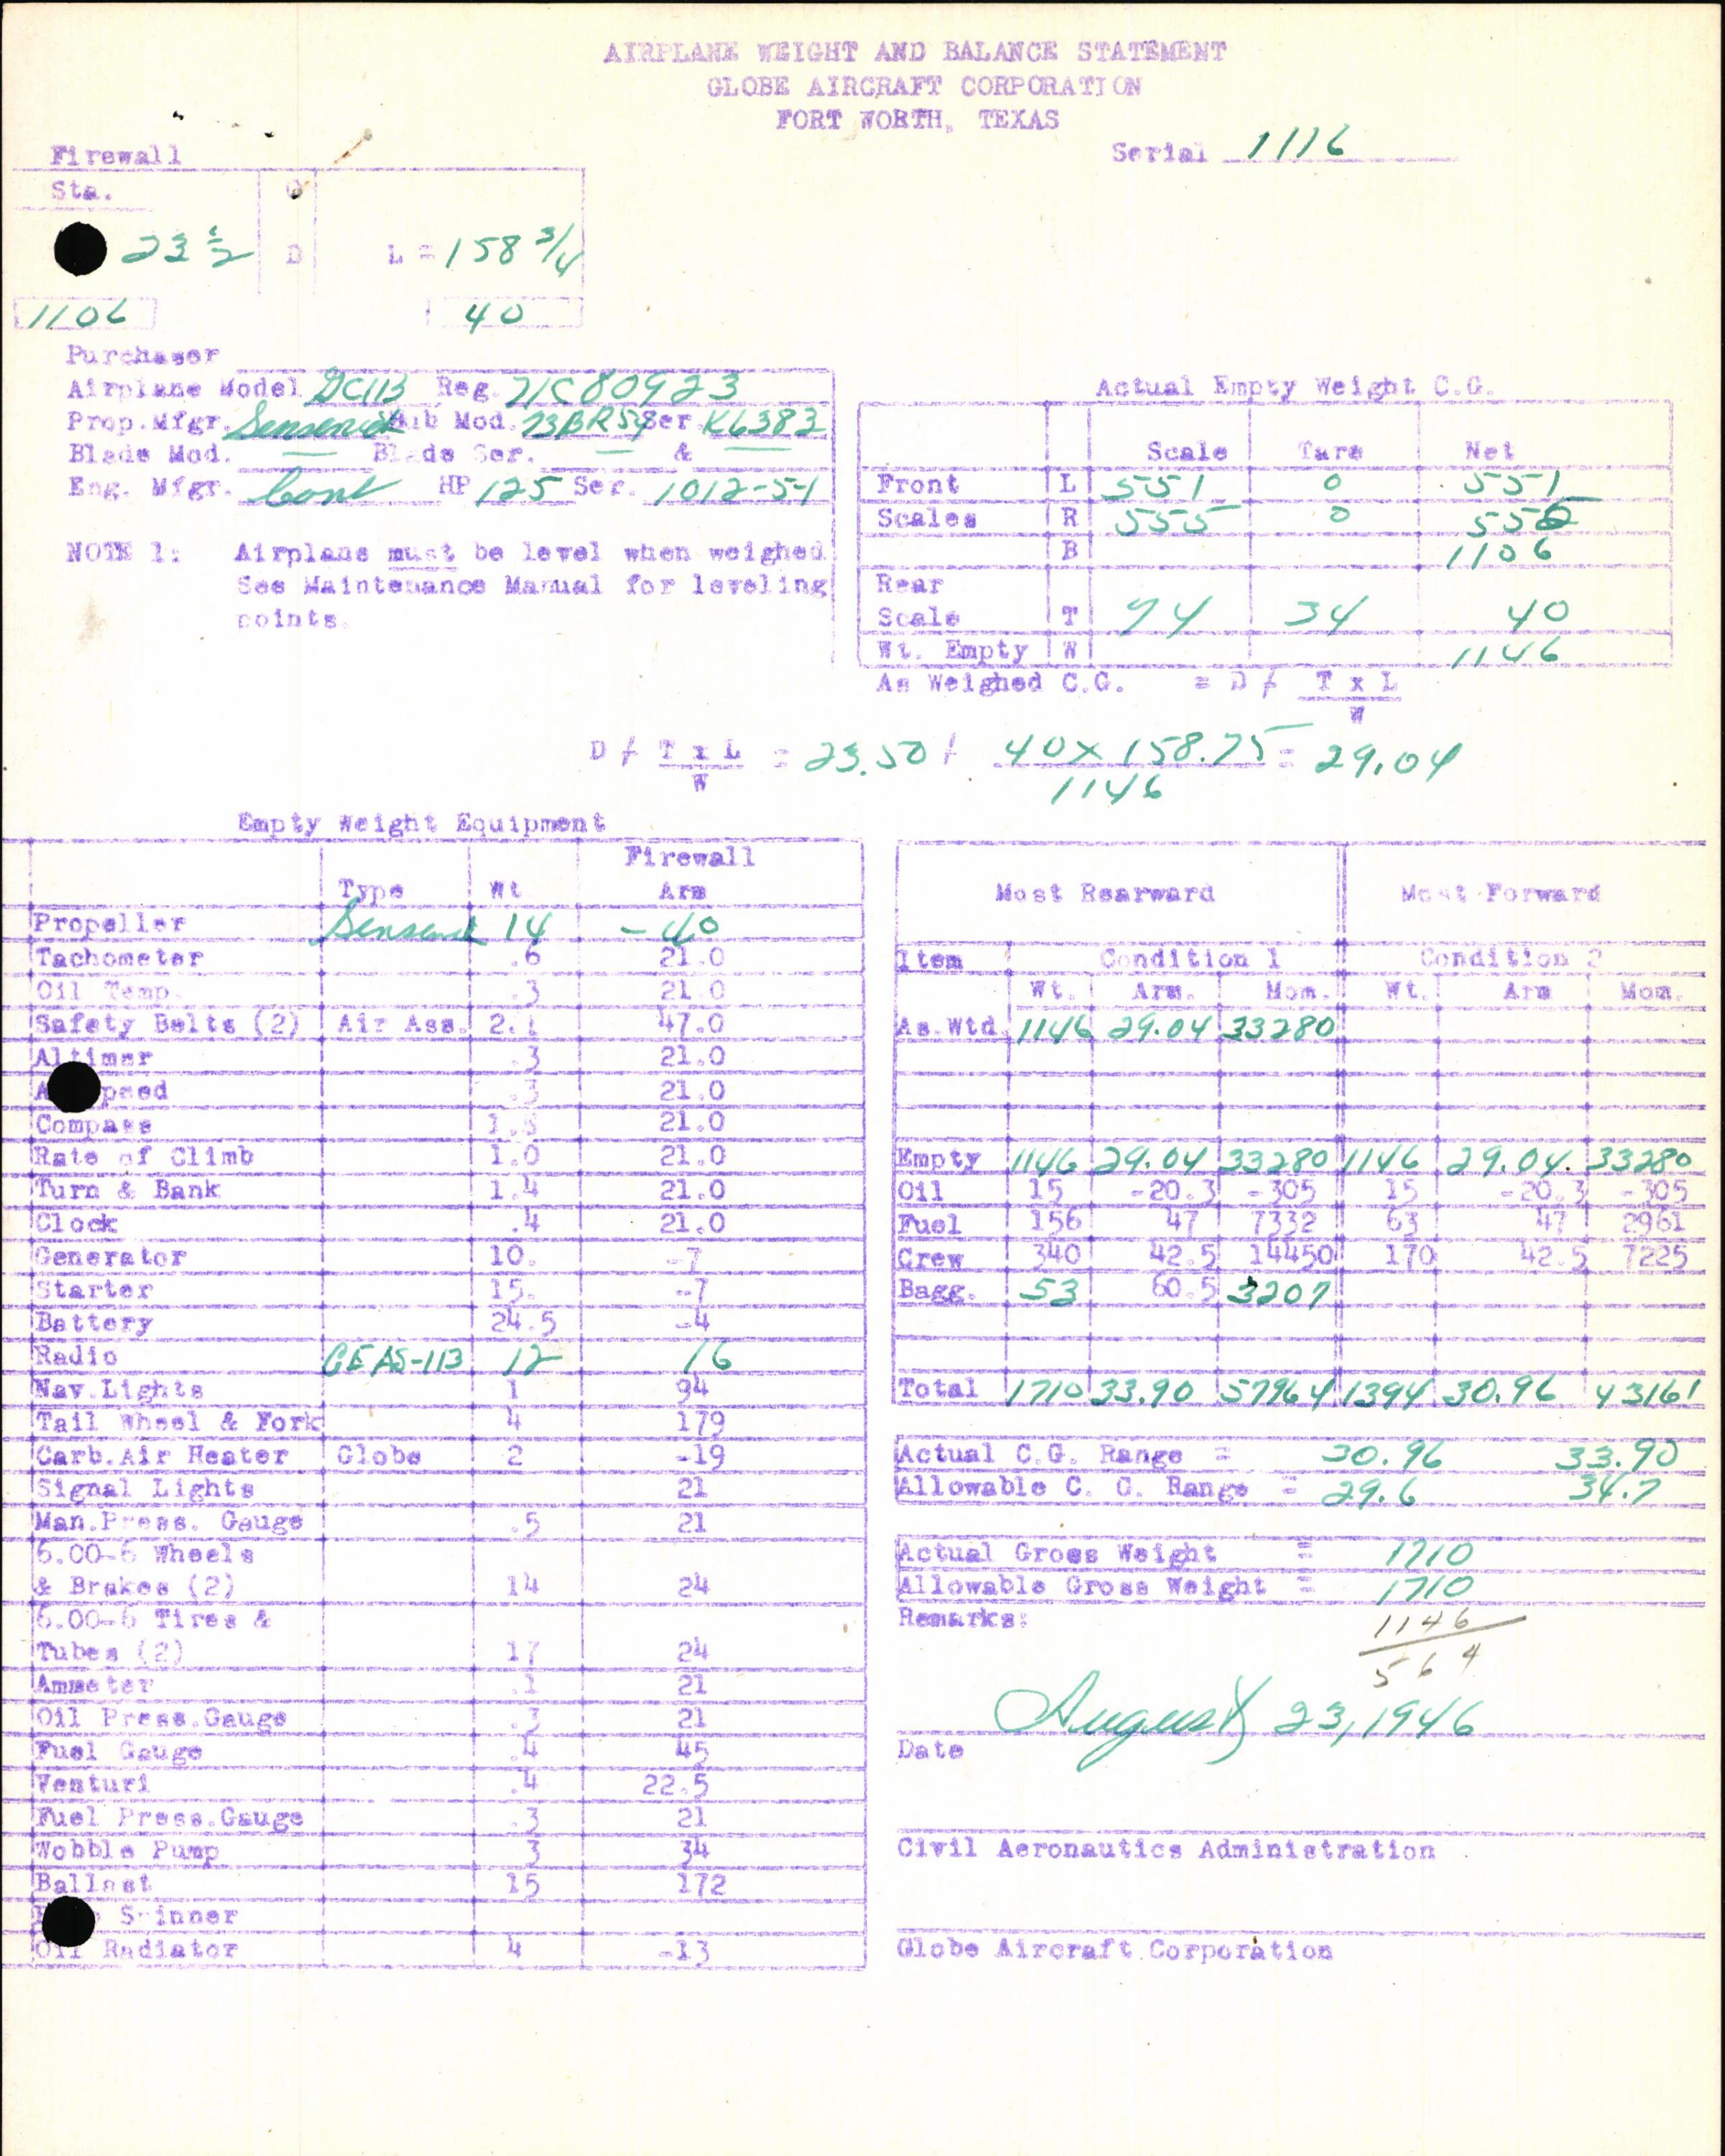 AIRPLANE WEIGHT AND BALANCE STATEMENT
GLOBE AIRCRAFT CORPORATION
FORT WORTH, TEXAS
Serial 1116
Firewall
Sta.
23 1/2 D L = 158 3/4
1106 40
Purchaser
Airplane Model GC113 Reg. 21C80923
Prop.Mfgr. Sensenich Hub Mod. 73BR54 Ser K6383
Blade Mod. — Blade Ser. — & —
Eng. Mfgr. Cont HP 125 Ser. 1012-5-1
NOTE 1: Airplane must be level when weighed
See Maintenance Manual for leveling
points.
Actual Empty Weight C.G.
Scale Tare Net
Front L 551 0 551
Scales R 555 0 555
B 1106
Rear
Scale T 74 34 40
Wt. Empty W 1146
As Weighed C.G. = D ≠ T x L
W
D ≠ T x L = 23.50 + 40 x 158.75 = 29.04
W 1146
Empty Weight Equipment
Firewall
Type Wt Arm
Propeller Sensenich 14 -40
Tachometer .6 21.0
Oil Temp. .3 21.0
Safety Belts (2) Air Ass. 2.1 47.0
Altimer .3 21.0
peed .3 21.0
Compass 21.0
Rate of Climb 1.0 21.0
Turn & Bank 1.4 21.0
Clock .4 21.0
Generator 10. -7
Starter 15. -7
Battery 24.5 -4
Radio GEAS-113 12 16
Nav.Lights 1 94
Tail Wheel & Fork 4 179
Carb.Air Heater Globe 2 -19
Signal Lights 21
Man.Press. Gauge .5 21
6.00-6 Wheels
& Brakes (2) 14 24
6.00-6 Tires &
Tubes (2) 17 24
Ammeter .1 21
Oil Press.Gauge .3 21
Fuel Gauge .4 45
Venturi .4 22.5
Fuel Press.Gauge .3 21
Wobble Pump 3 34
Ballast 15 172
Spinner
Oil Radiator 4 -13
Most Rearward Most Forward
Item Condition 1 Condition 2
Wt. Arm. Mom. Wt. Arm Mom.
As Wtd. 1146 29.04 33280
Empty 1146 29.04 33280 1146 29.04. 33280
Oil 15 -20.3 -305 15 -20.3 -305
Fuel 156 47 7332 63 47 2961
Crew 340 42.5 14450 170 42.5 7225
Bagg. 53 60.5 3207
Total 1710 33.90 57964 1394 30.96 43161
Actual C.G. Range = 30.96 33.90
Allowable C. G. Range = 29.6 34.7
Actual Gross Weight = 1710
Allowable Gross Weight = 1710
Remarks: 1146
564
August 23, 1946
Date
Civil Aeronautics Administration
Globe Aircraft Corporation